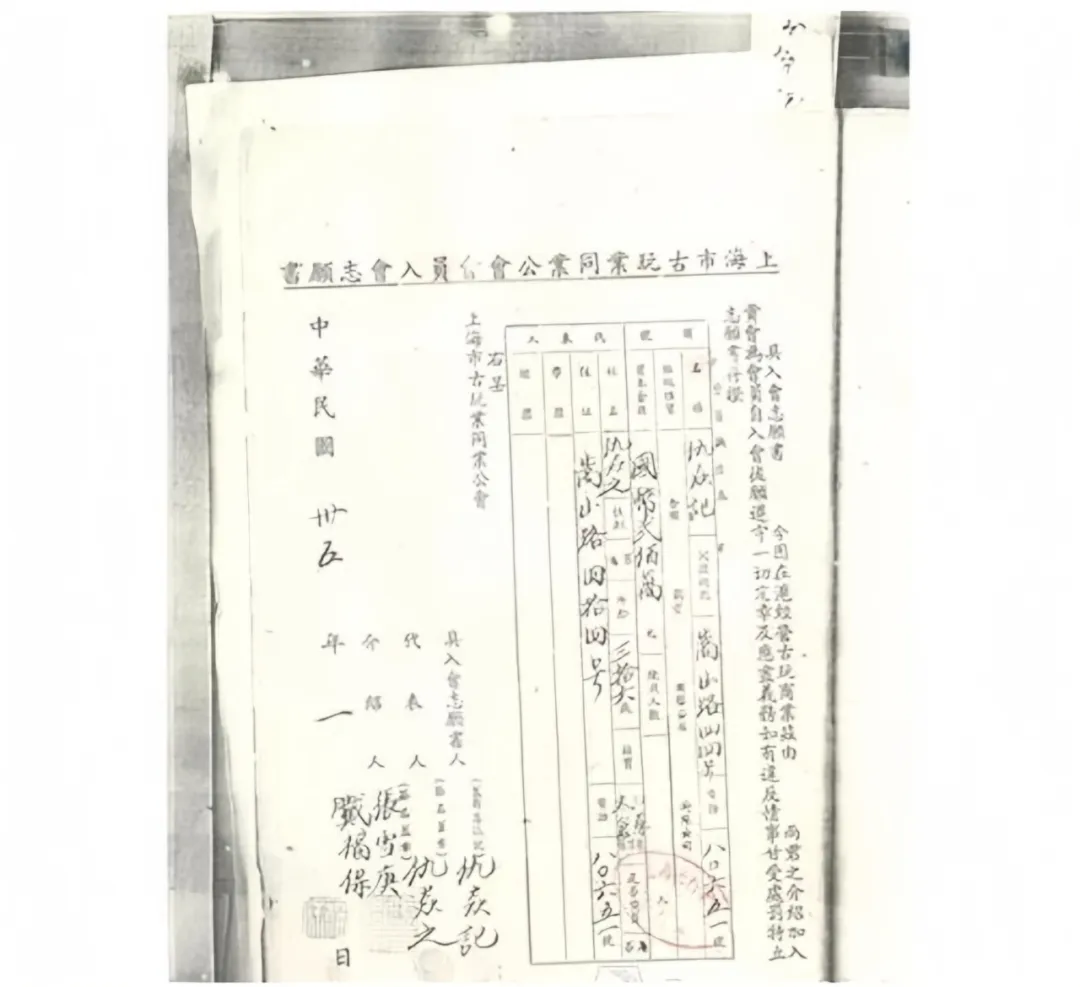 上海市古玩業同業公會會員入會志願書
具入會志願書
今因在滬經營古玩商業茲由
兩君之介紹加入
貴會為會員自入會後願遵守一切定章及應盡義務如有違反情事甘受處罰特立
志願書存證
商號
名稱
仇焱記
嵩山路四四号
電話
八〇六五一號
組織性質
資本金額
國幣弍佰萬
元
使用人數
代表人
姓名
仇焱之
性別
男
年齡
三拾六
歲
籍貫
住址
嵩山路四拾四号
電話
八〇六五一號
學歷
經歷
右呈
上海市古玩業同業公會
具入會志願書人
仇焱記
代表人
仇焱之
介紹人
張雪庚
戴福保
中華民國
卅五
年
一
日